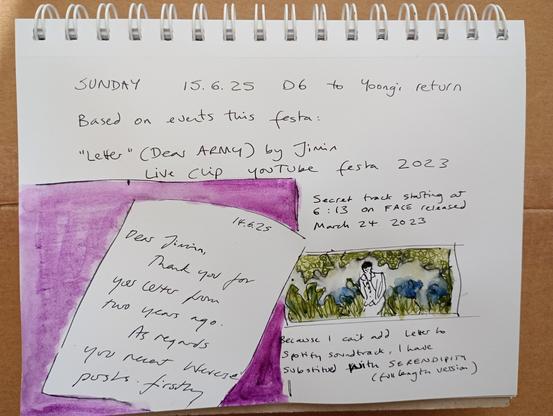 SUNDAY 15.6.25 D6 to Yoongi return
Based on events this festa:
"Letter" (Dear ARMY) by Jimin
Live Clip YouTube festa 2023
Secret track starting at
6:13 on FACE released
March 24 2023
14.6.25
Dear Jimin,
Thank you for
your letter from
two years ago.
As regards
your recent Weverse
posts. firstly
Because I can't add Letter to
Spotify soundtrack, I have
substituted with SERENDIPITY
(full length version)